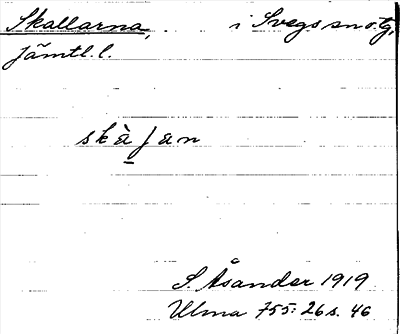 Skallarna, i Svegs sn o. tg,
Jämtl. l.
skàJan
S. Åsander 1919
Ulma 755:26 s. 46